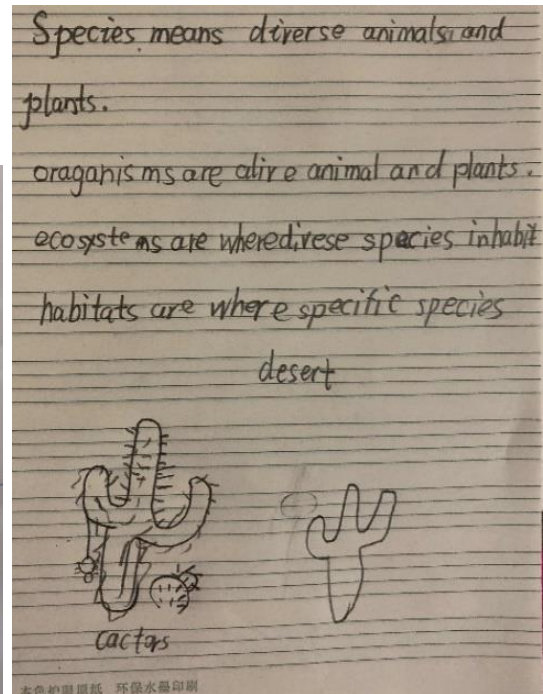 Species means diverse animals and
plants.
oraganisms are alive animal and plants.
ecosystems are where divese species inhabit
habitats are where specific species
desert
cactors
本色护眼原纸 环保水墨印刷